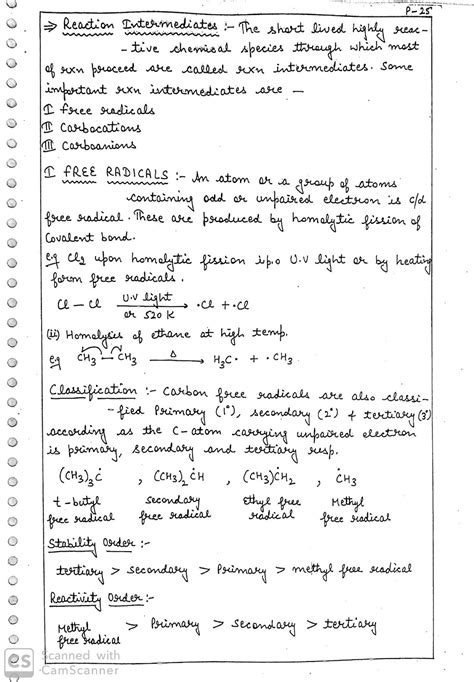 P-25
⇒ Reaction Intermediates :- The short lived highly reac-
-tive chemical species through which most
of rxn proceed are called rxn intermediates. Some
important rxn intermediates are —
I free radicals
II Carbocations
III Carboanions
I FREE RADICALS :- An atom or a group of atoms
containing odd or unpaired electron is c/d
free radical. These are produced by homolytic fission of
Covalent bond.
e.g Cl₂ upon homolytic fission i.p.o U.V light or by heating
form free radicals.
Cl — Cl U.V light or 520 K → ·Cl + ·Cl
(ii) Homolysis of ethane at high temp.
eg CH₃ — CH₃ Δ → H₃C· + ·CH₃
Classification :- Carbon free radicals are also classi-
-fied Primary (1°), secondary (2°) & tertiary (3°)
according as the C-atom carrying unpaired electron
is primary, secondary and tertiary resp.
(CH₃)₃Ċ , (CH₃)₂ĊH , (CH₃)ĊH₂ , ĊH₃
t-butyl Secondary Ethyl free Methyl
free radical free radical radical free radical
Stability Order :-
tertiary > secondary > Primary > methyl free radical
Reactivity Order :-
Methyl > Primary > Secondary > tertiary
free radical
CS Scanned with
CamScanner